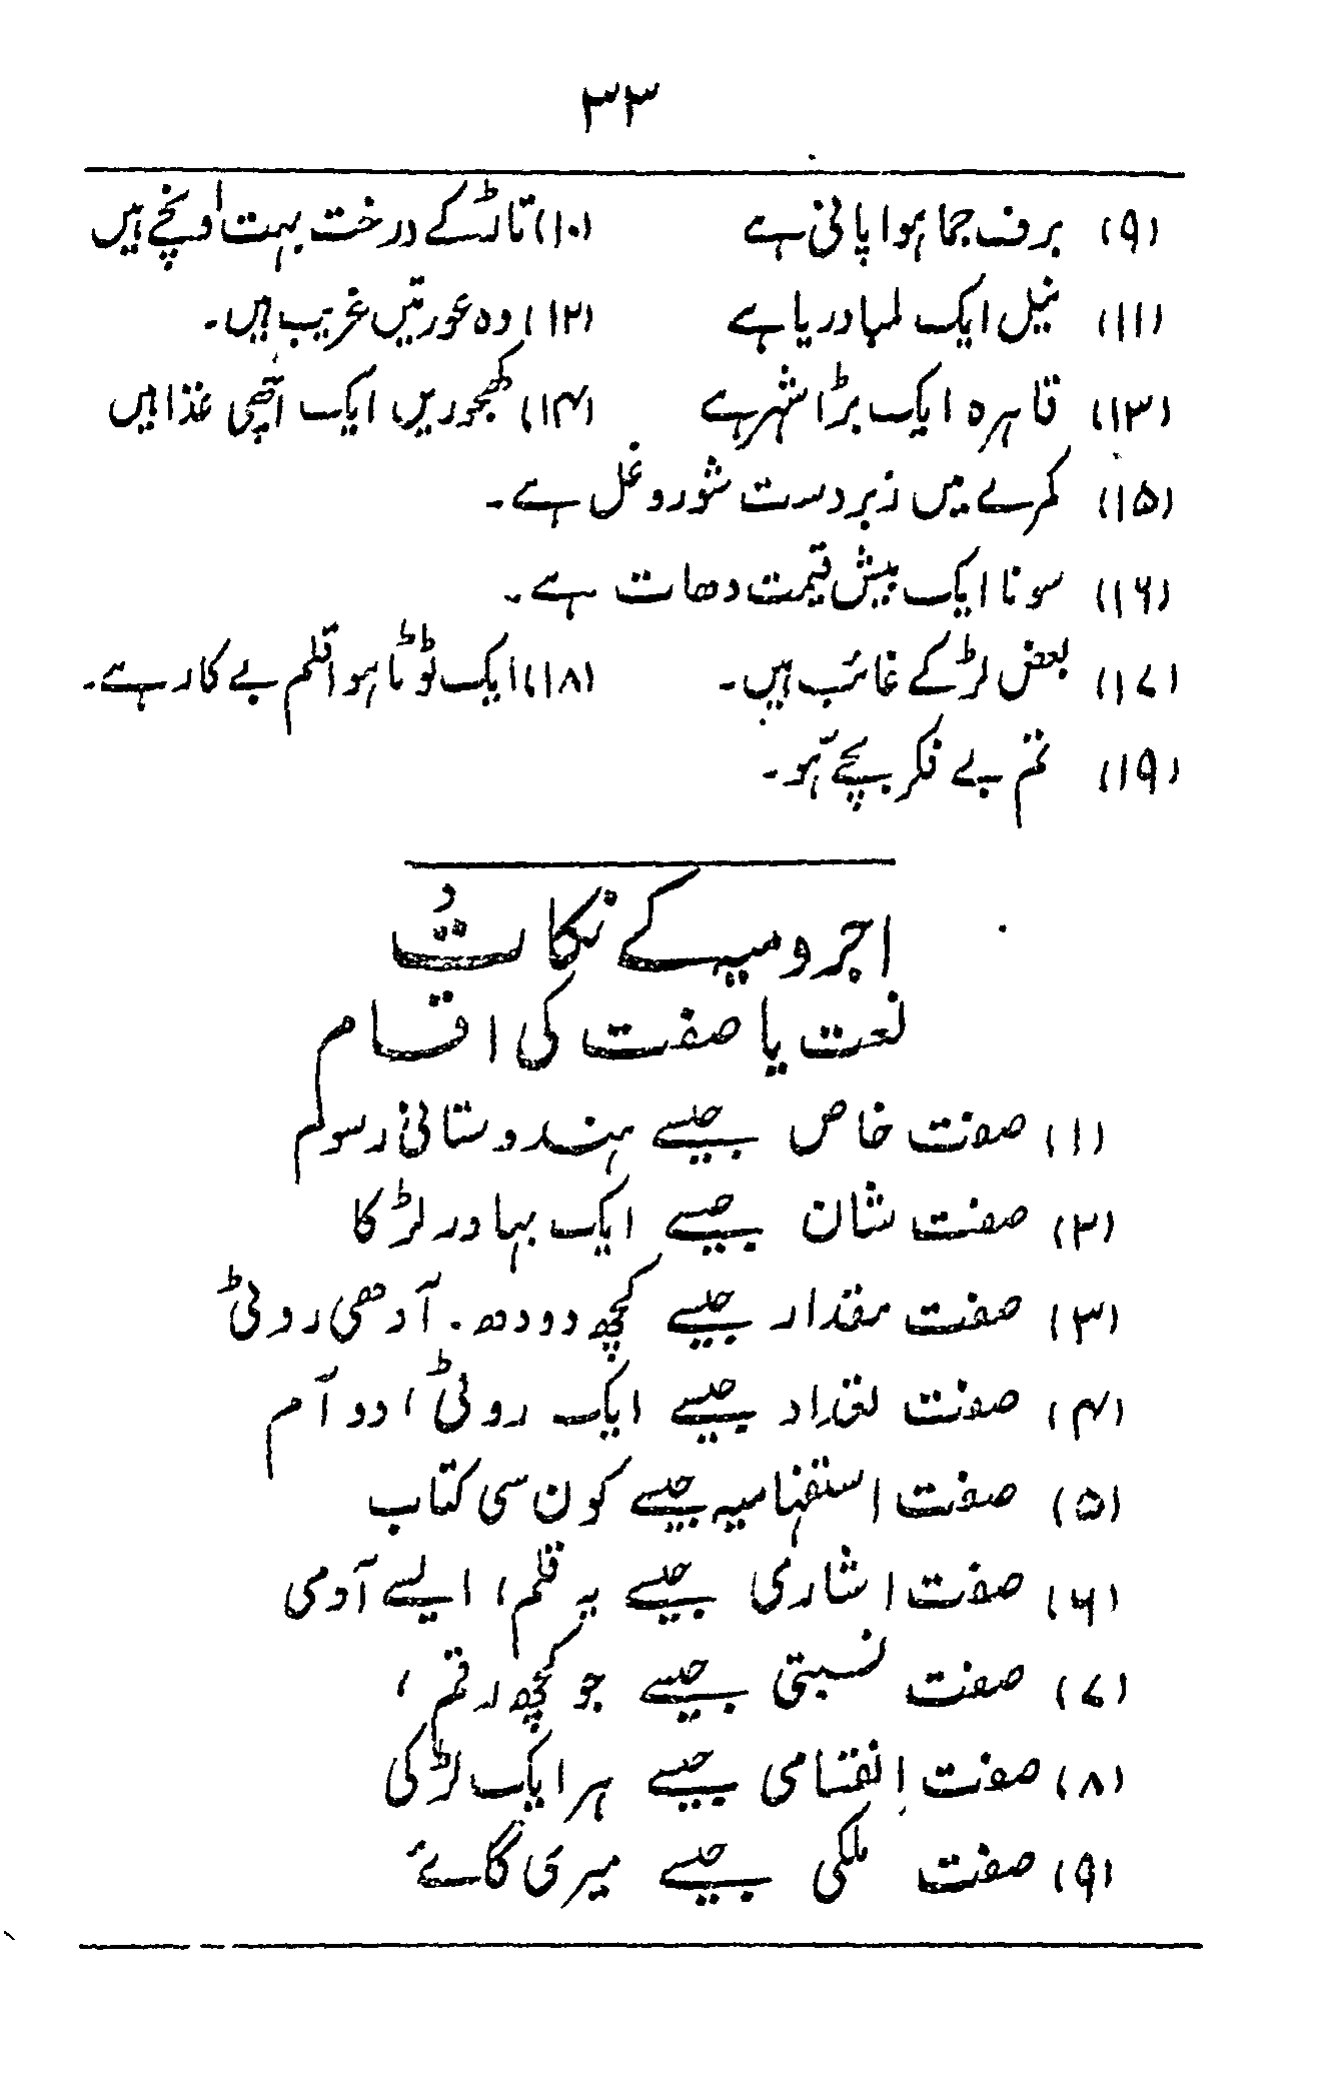 ۳۳
(۹) برف جما ہوا پانی ہے (۱۰) تاڑ کے درخت بہت اونچے ہیں
(۱۱) نیل ایک لمبا دریا ہے (۱۲) وہ عورتیں غریب ہیں۔
(۱۳) قاہرہ ایک بڑا شہر ہے (۱۴) کھجوریں ایک اچھی غذا ہیں
(۱۵) کمرے میں زبردست شور و غل ہے۔
(۱۶) سونا ایک بیش قیمت دھات ہے۔
(۱۷) بعض لڑکے غائب ہیں۔ (۱۸) ایک ٹوٹا ہوا قلم بے کار ہے۔
(۱۹) تم بے فکر بچّے ہو۔
اجرومیہ کے نکات
نعت یا صفت کی اقسام
(۱) صفت خاص جیسے ہندوستانی رسوم
(۲) صفت شان جیسے ایک بہادر لڑکا
(۳) صفت مقدار جیسے کچھ دودھ۔ آدھی روٹی
(۴) صفت تعداد جیسے ایک روٹی، دو آم
(۵) صفت استفہامیہ جیسے کون سی کتاب
(۶) صفت اشاری جیسے یہ قلم، ایسے آدمی
(۷) صفت نسبتی جیسے جو کچھ رقم،
(۸) صفت اِنقسامی جیسے ہر ایک لڑکی
(۹) صفت ملکی جیسے میری گائے